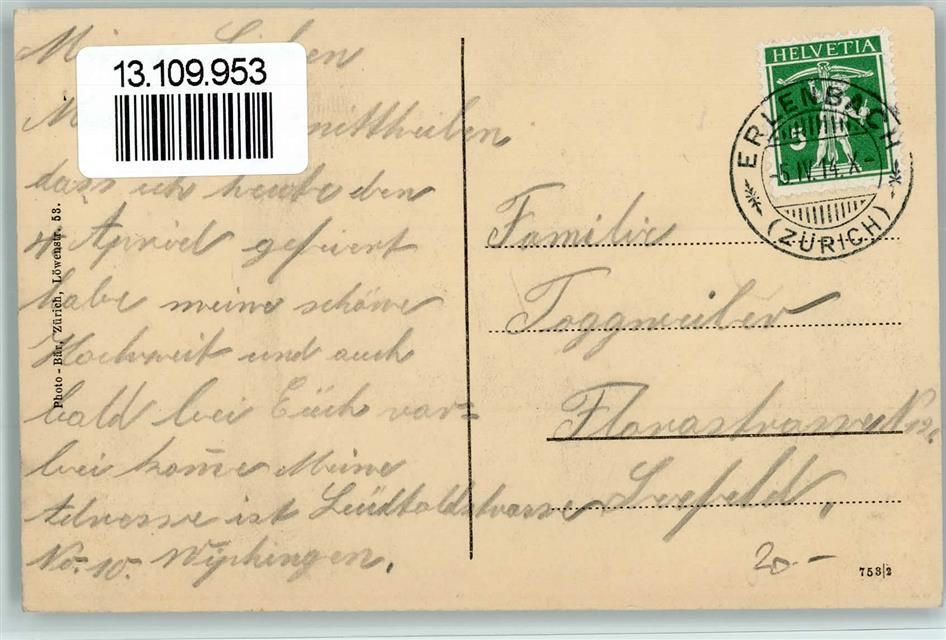 13.109.953
Lieben
mittheilen
dass ich heute den
4 Apriel gefeiert
habe meine schöne
Hochzeit und auch
bald bei Euch vor=
bei kome Meine
Adresse ist Leüdtoldstrasse
No. 10. Wipkingen.
Photo-Bär, Zürich, Löwenstr. 53.
HELVETIA
5
ERLENBACH
(ZÜRICH)
Familie
Toggweiler
Florastrasse No 12
Seefeld,
20.-
753|2